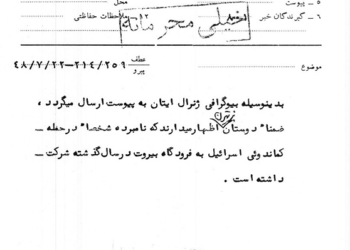 ۵ ــ پیوست
محل
۶ ــ گیرندگان خبر
۱۲ ملاحظات حفاظتی
خیلی محرمانه
موضوع
عطف
پیرو
۲۱۴/۲۵۹ــ۴۸/۷/۲۲
بدینوسیله بیوگرافی ژنرال ایتان به پیوست ارسال میگردد ،
ضمنا" دوستان اظهار میدارند که نامبرده شخصا" در حمله
کماندوئی اسرائیل به فرودگاه بیروت در سال گذشته شرکت ــ
داشته است .